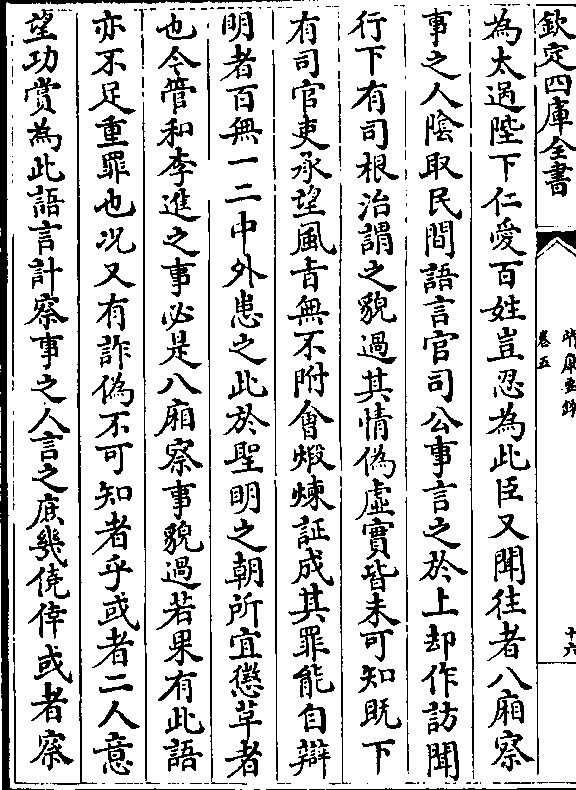 欽定四庫全書
靖康要録
卷五
十六
為太過陛下仁愛百姓豈忍為此臣又聞往者八廂察
事之人陰取民間語言官司公事言之於上却作訪聞
行下有司根治謂之貌過其情偽虛實皆未可知既下
有司官吏承望風㫖無不附會煅煉証成其罪能自辯
明者百無一二中外患之此於聖明之朝所宜懲革者
也令管和李進之事必是八廂察事貌過若果有此語
亦不足重罪也况又有詐偽不可知者乎或者二人意
望功賞為此語言計察事之人言之庶幾僥倖或者察